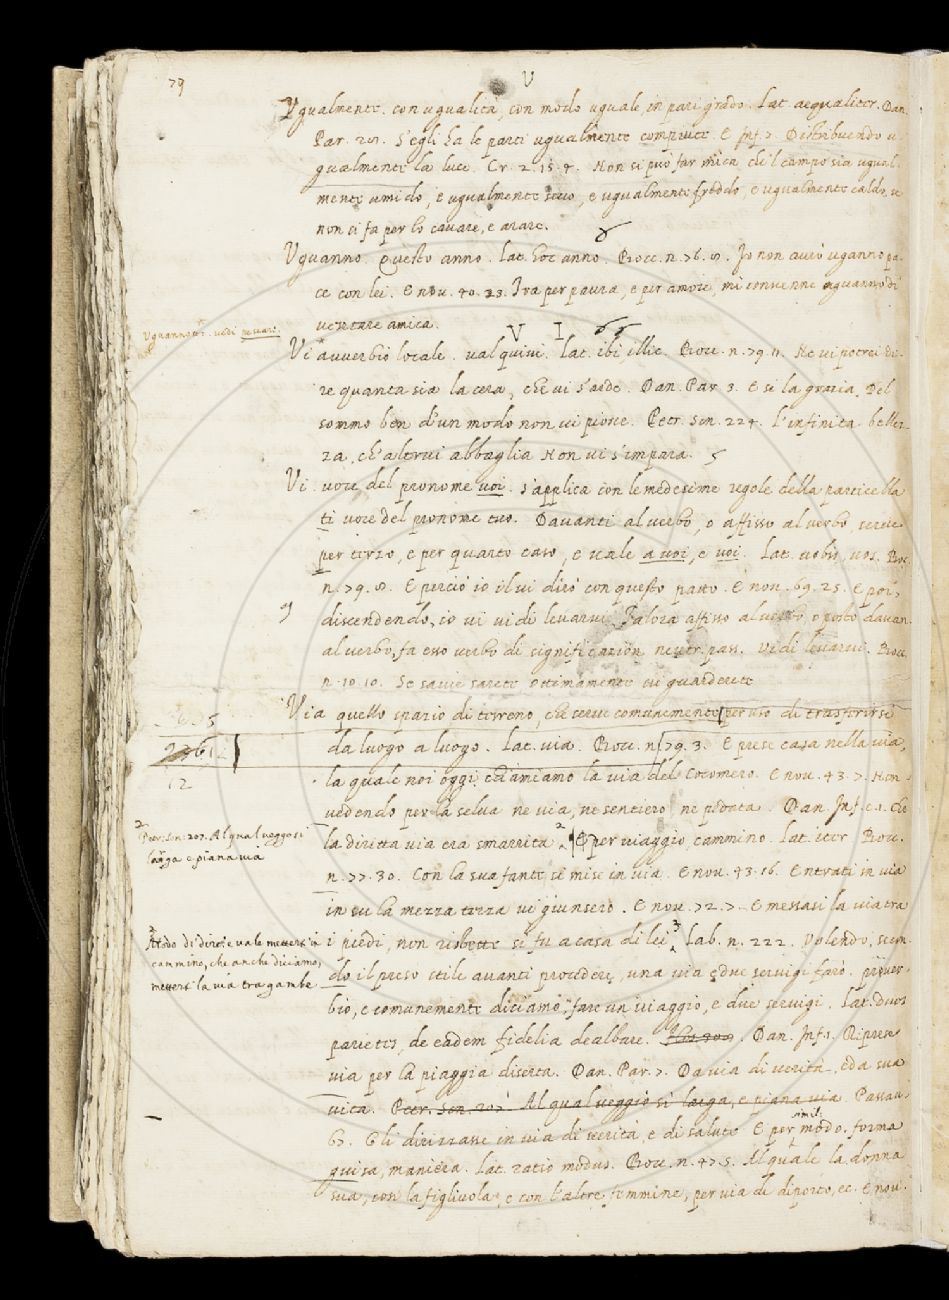 79
V
Vgualmente. con ugualità, con modo uguale, in pari grado. Lat. aequaliter. Dan.
Par. S'egli ha le parti ugualmente compiute. E Inf. 7. Distribuendo u-
gualmente la luce. Cr. 2. 15. 4. Non si può far mica ch'il campo sia ugual-
mente umido, e ugualmente secco, e ugualmente freddo, e ugualmente caldo, se
non si fa per lo cavare, e arare.
Vguanno. Questo anno. Lat. hoc anno. Bocc. n. 76. Io non avrò uganno pa-
ce con lei. E nou. 40. 23. Tra per paura, e per amore, mi convenne uguanno di
ventare amica.
V I
Vi avverbio locale. val quivi. Lat. ibi illic. Bocc. n. 79. 11. Ne vi potrei di-
re quanta sia la cera, che vi s'arde. Dan. Par. 3. E sì la grazia. Del
sommo ben d'un modo non vi piove. Petr. son. 224. L'infinita bellez-
za, ch'altrui abbaglia Non vi s'impara.
Vi. voce del pronome voi. s'applica con le medesime regole della particella
ti voce del pronome tu. Davanti al verbo, o affisso al verbo, serve
per terzo, e per quarto caso, e vale a voi, e voi. Lat. vobis, vos. Boc.
n. 79. 8. E perciò io il vi dirò con questo patto. E nou. 69. 25. E poi,
discendendo, io vi vidi levarvi. Talora affisso al verbo, o posto davan.
al verbo, fa esso verbo di significazion neutr. pass. Vidi levarvi. Bocc.
n. 10. 10. Se savie sarete ottimamente vi guarderete
Via quello spazio di terreno, che serve comunemente per uso di trasferirsi
da luogo a luogo. Lat. via. Bocc. n. 79. 3. E prese casa nella via,
la quale noi oggi chiamiamo la via del Cocomero. E nou. 43. 7. Non
vedendo per la selva ne via, ne sentiero ne pedata. Dan. Inf. c. 1. Che
la diritta via era smarrita 2 E per viaggio, cammino. Lat. iter Bocc.
n. 77. 30. Con la sua fante si mise in via. E nou. 43. 16. Entrati in via
in su la mezza terza vi giunsero. E nou. 72. 7. E messasi la via tra
i piedi, non ristette si fu a casa di lei 3 Lab. n. 222. Volendo, secon-
do il preso stile avanti procedere, una via e due servigi farò. prover-
bio, e comunemente diciamo, fare un viaggio, e due servigi. Lat. duos
parietes, de eadem fidelia dealbare. Dan. Inf. 1. Ripresi
via per la piaggia diserta. Dan. Par. 7. Da via di verità, e da sua
vita. Petr. son. 207. Al qual veggio sì larga, e piana via. Passav.
67. Gli dirizzasse in via di verità, e di salute E per simil. modo, forma
guisa, maniera. Lat. ratio modus. Bocc. n. 47. 5. Al quale la donna
sua, con la figliuola, e con l'altre femmine, per via di diporto, ec. E nou.
Uguannotto. vedi
2361
62
2
Petr. son. 207. Al qual veggo si
larga e piana via
3
Modo di dire e vale mettersi in
cammino, che anche diciamo,
mettersi la via tra gambe